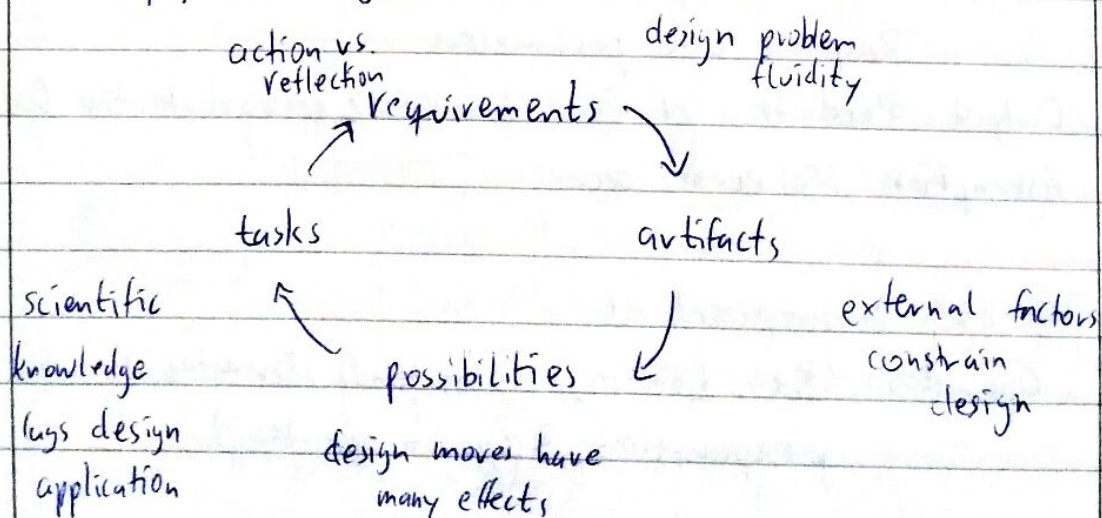 action vs.
reflection
design problem
fluidity
requirements
tasks
artifacts
scientific
knowledge
lags design
application
possibilities
external factors
constrain
design
design moves have
many effects